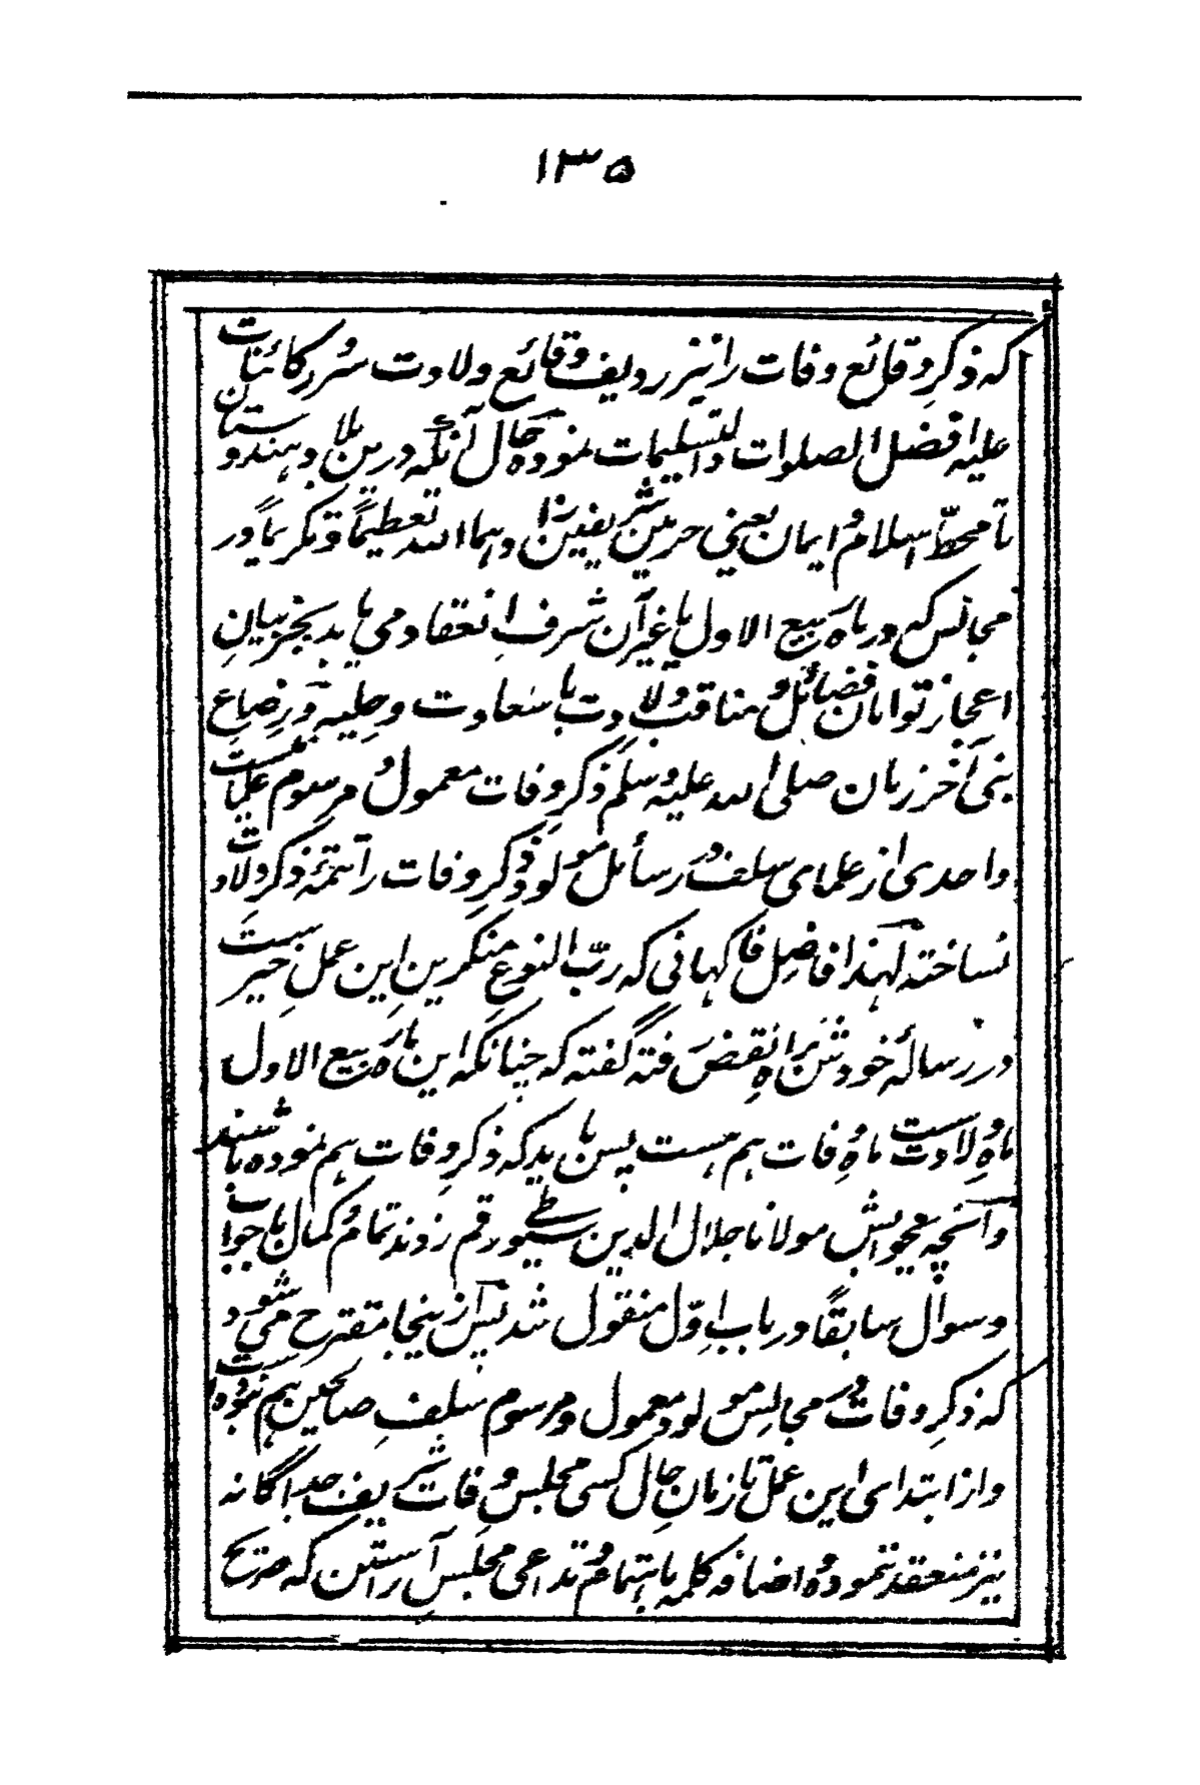 ۱۳۵
که ذکر وقائع وفات را نیز ردیف وقائع ولادت سرور کائنات
علیه افضل الصلوات والتسلیمات نموده حال آنکه درین بلاد هندوستان
تا محط اسلام و ایمان یعنی حرمین شریفین زادهما الله تعظیماً و تکریماً در
مجالس که در ماه ربیع الاول یا غیر آن شرف انعقاد می یابد بجز بیانِ
اعجاز توامان فضائل و مناقب و ولادت با سعادت و حلیه و رضاع
نبی آخر زمان صلی الله علیه وسلم ذکر وفات معمول و مرسوم علما نیست
و احدی از علمای سلف در رسائل مولود ذکرِ وفات را تتمهٔ ذکر ولادت
نساخته لهذا فاضل فاکهانی که ربّ النوع منکرین این عملِ خیر ست
در رسالهٔ خودش براه نقض رفته گفته که چنانکه این ماه ربیع الاول
ماه ولادت ست ماه وفات هم هست پس باید که ذکر وفات هم نموده باشند
و آنچه بجوابش مولانا جلال الدین سیوطی رقم زدند تمام و کمال با جواب
و سوال سابقاً در باب اوّل منقول شد پس ازینجا مقترح می شود
که ذکرِ وفات در مجالس مولود معمول و مرسوم سلفِ صالحین هم نبوده است
و از ابتدای این عمل تا زمانِ حال کسی مجلس وفات شریف جداگانه
نیز منعقد ننموده و اضافه کلمه باهتمام و تداعی مجلسِ آراستن که صریح